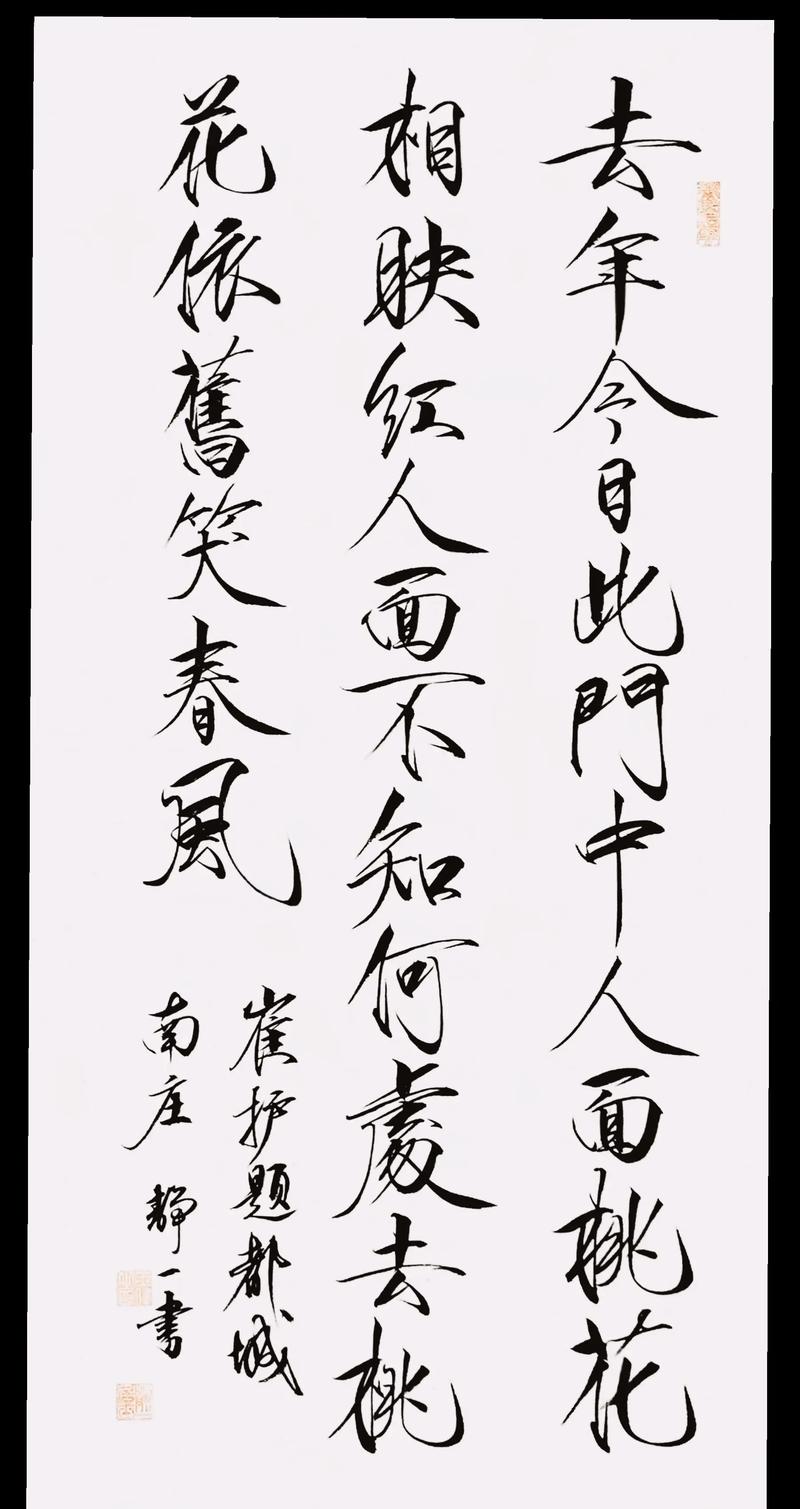 去年今日此門中人面桃花
相映紅人面不知何處去桃
花依舊笑春風
崔护题都城
南庄 靜一书